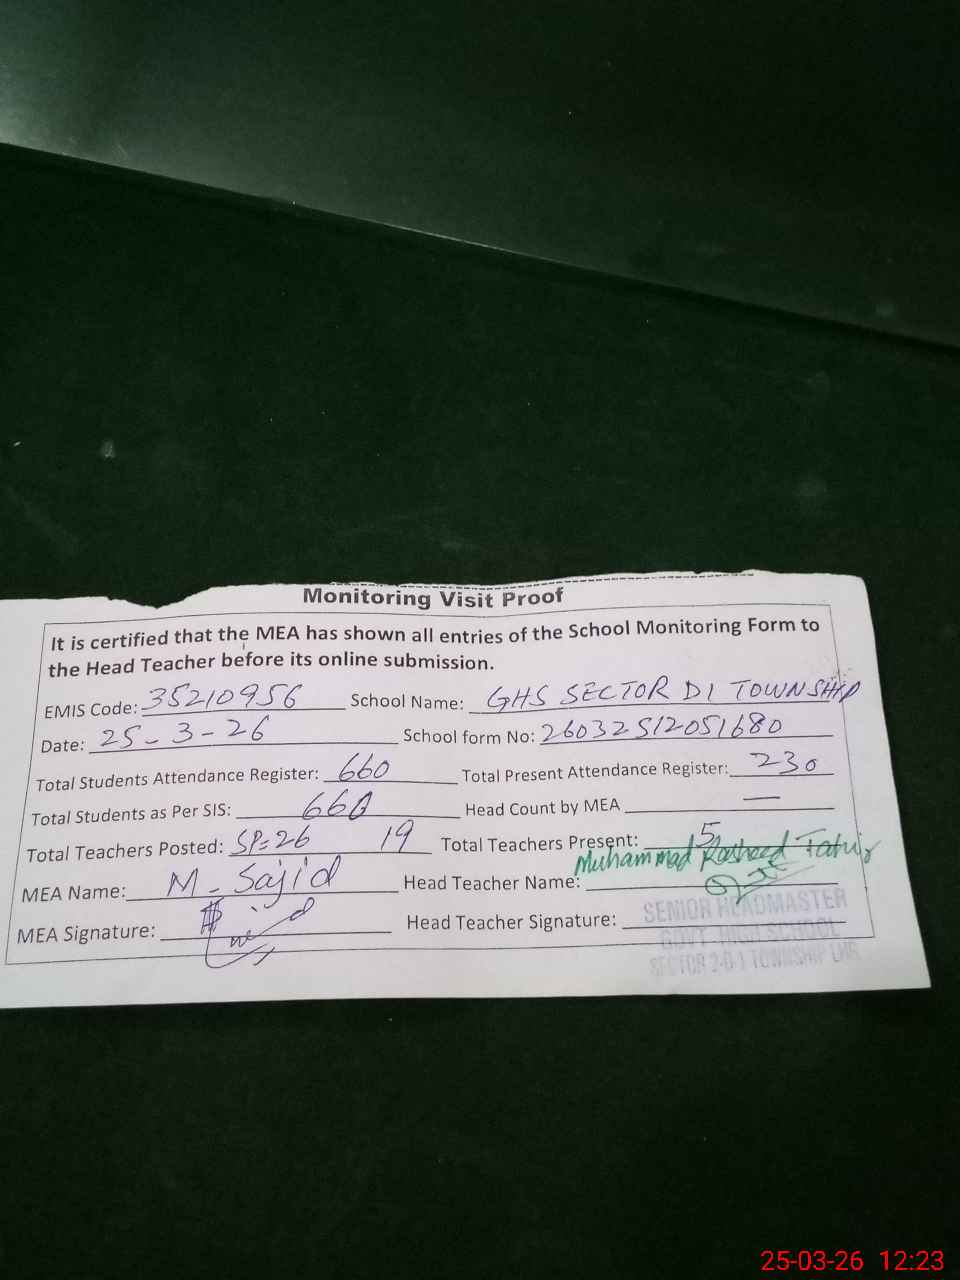 Monitoring Visit Proof
It is certified that the MEA has shown all entries of the School Monitoring Form to
the Head Teacher before its online submission.
EMIS Code: 35210956 School Name: GHS SECTOR D1 TOWNSHIP
Date: 25-3-26 School form No: 26032512051680
Total Students Attendance Register: 660 Total Present Attendance Register: 230
Total Students as Per SIS: 660 Head Count by MEA —
Total Teachers Posted: SP=26 19 Total Teachers Present: 5
MEA Name: M. Sajid Head Teacher Name: Muhammad Rasheed Tahir
MEA Signature: Head Teacher Signature:
SENIOR HEADMASTER
GOVT. HIGH SCHOOL
SECTOR 2-D-1 TOWNSHIP LHR.
25-03-26 12:23